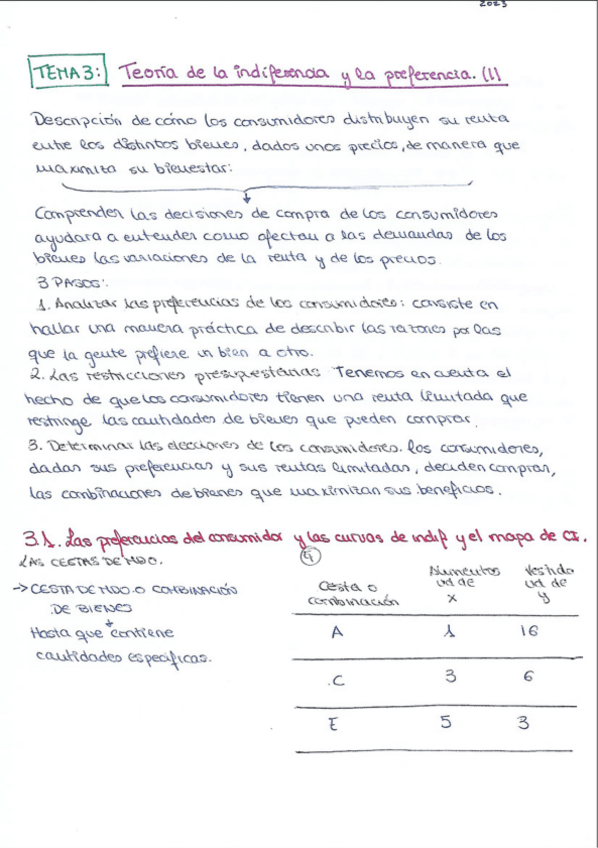 2023
TEMA 3: Teoría de la indiferencia y la preferencia. (I)
Descripción de cómo los consumidores distribuyen su renta
entre los distintos bienes, dados unos precios, de manera que
maximiza su bienestar:
Comprender las decisiones de compra de los consumidores
ayudara a entender como afectan a las demandas de los
bienes las variaciones de la renta y de los precios.
3 PASOS:
1. Analizar las preferencias de los consumidores: consiste en
hallar una manera práctica de describir las razones por las
que la gente prefiere un bien a otro.
2. Las restricciones presupuestarias Tenemos en cuenta el
hecho de que los consumidores tienen una renta limitada que
restringe las cantidades de bienes que pueden comprar.
3. Determinar las elecciones de los consumidores. Los consumidores,
dadas sus preferencias y sus rentas limitadas, deciden comprar,
las combinaciones de bienes que maximizan sus beneficios.
3.1. Las preferencias del consumidor y las curvas de indif y el mapa de CI.
LAS CESTAS DE MDO.
→ CESTA DE MDO. O COMBINACIÓN
DE BIENES
Hasta que contiene
cantidades especificas.
4
Cesta o combinación Alimentos ud de x Vestido ud de y
A 1 16
C 3 6
E 5 3